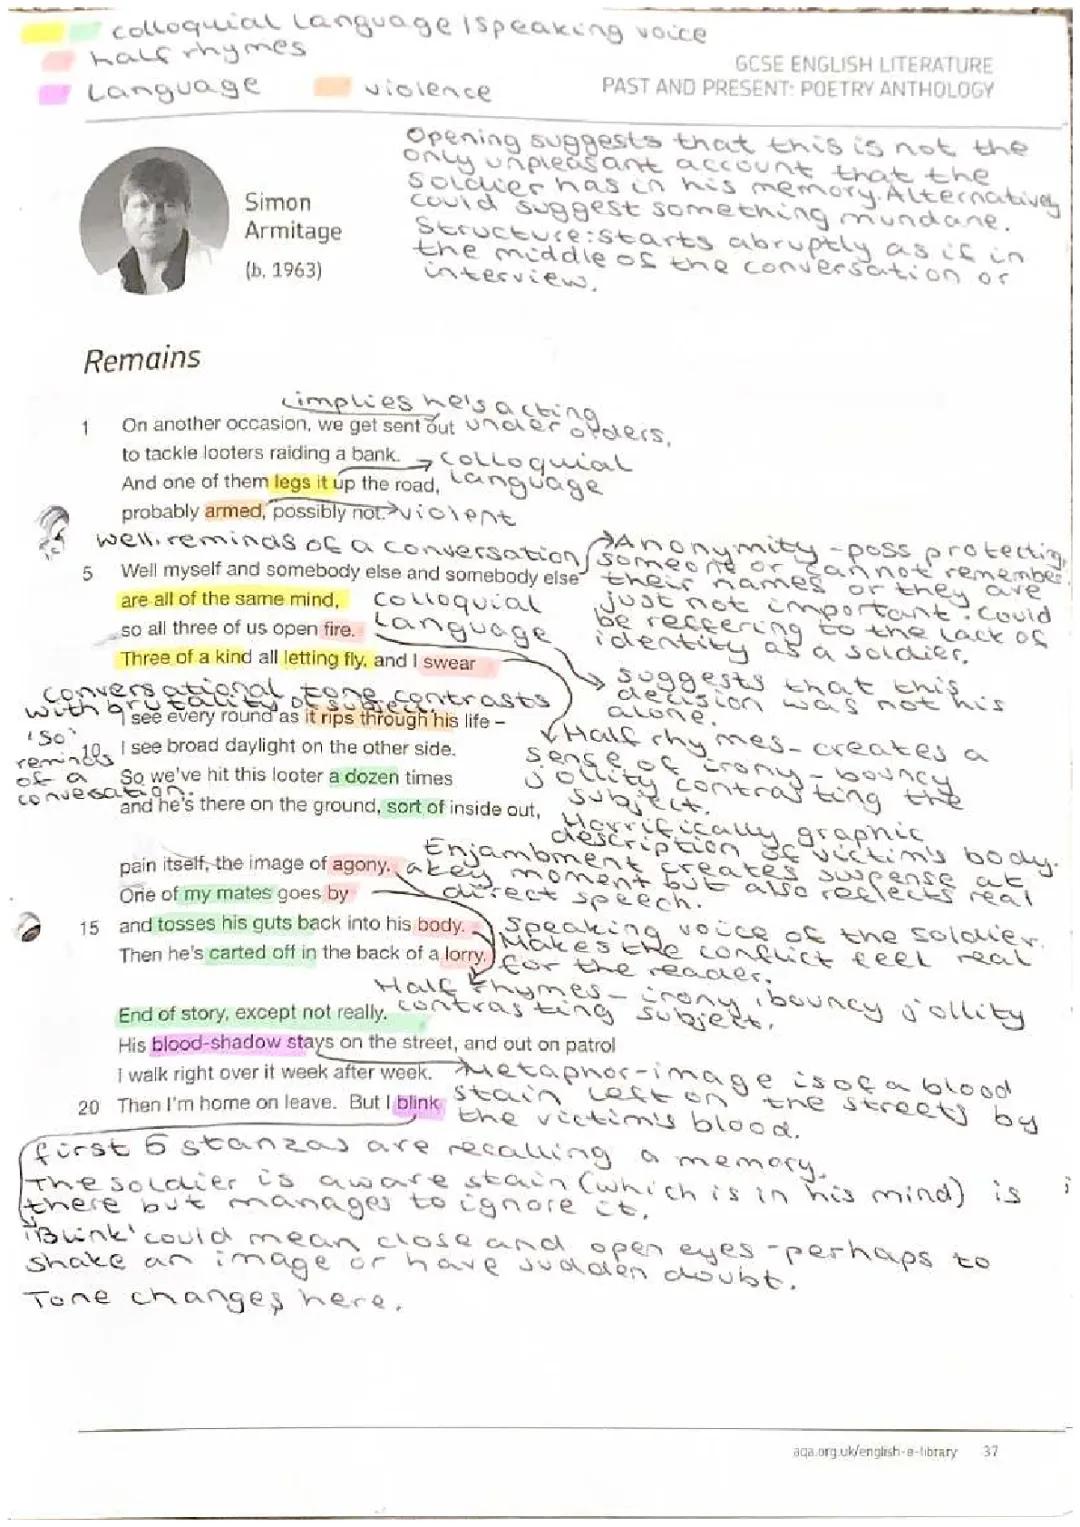 colloquial language / speaking voice
half rhymes
Language
violence
GCSE ENGLISH LITERATURE
PAST AND PRESENT: POETRY ANTHOLOGY
Opening suggests that this is not the
only unpleasant account that the
soldier has in his memory. Alternatively
could suggest something mundane.
Structure: starts abruptly as if in
the middle of the conversation or
interview.
Simon
Armitage
(b. 1963)
Remains
implies he's acting
under orders.
1 On another occasion, we get sent out
to tackle looters raiding a bank.
colloquial
language
And one of them legs it up the road,
probably armed, possibly not.
violent
well. reminds of a conversation
Anonymity - poss protecting
someone or cannot remember
their names or they are
just not important. Could
be reffering to the lack of
identity as a soldier.
5 Well myself and somebody else and somebody else
are all of the same mind,
colloquial
Language
so all three of us open fire.
Three of a kind all letting fly, and I swear
suggests that this
decision was not his
alone.
conversational tone contrasts
with brutality of subject.
I see every round as it rips through his life –
'So'
reminds
of a
convesation.
10 I see broad daylight on the other side.
So we've hit this looter a dozen times
and he's there on the ground, sort of inside out,
Half rhymes - creates a
sense of irony - bouncy
jollity contrasting the
subject.
Horrifically graphic
description of victim's body.
Enjambment creates suspense at
a key moment but also reflects real
direct speech.
pain itself, the image of agony.
One of my mates goes by
15 and tosses his guts back into his body.
Then he's carted off in the back of a lorry.
Speaking voice of the soldier.
Makes the conflict feel real
for the reader.
Half rhymes - irony, bouncy jollity
contrasting subject.
End of story, except not really.
His blood-shadow stays on the street, and out on patrol
I walk right over it week after week.
20 Then I'm home on leave. But I blink
Metaphor - image is of a blood
stain left on the streets by
the victim's blood.
first 5 stanzas are recalling a memory.
The soldier is aware stain (which is in his mind) is
there but manages to ignore it.
'Blink' could mean close and open eyes - perhaps to
shake an image or have sudden doubt.
Tone changes here.
aqa.org.uk/english-e-library 37